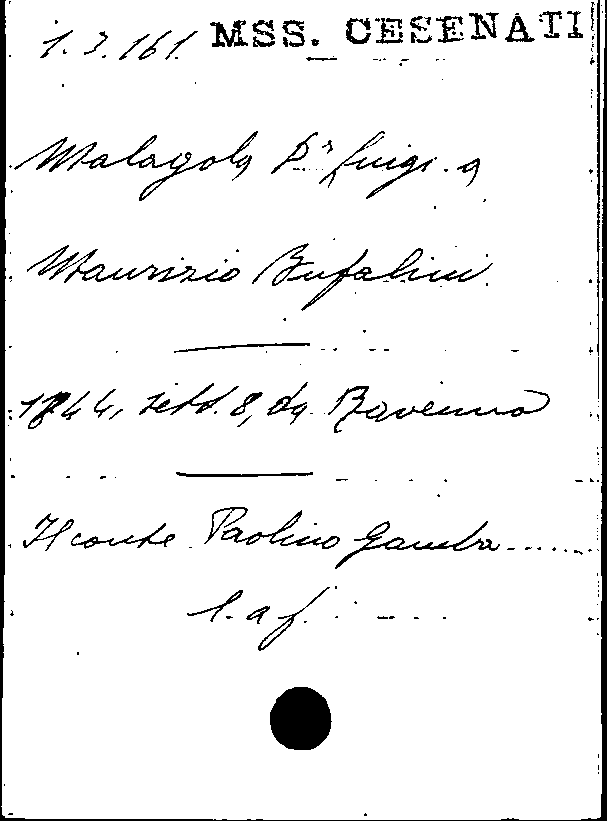 1.3.161. MSS. CESENATI
Malagola Dr Luigi. a
Maurizio Bufalini.
1844, sett. 8, da Ravenna
Il conte Paolino Gamba.......
l. a f.